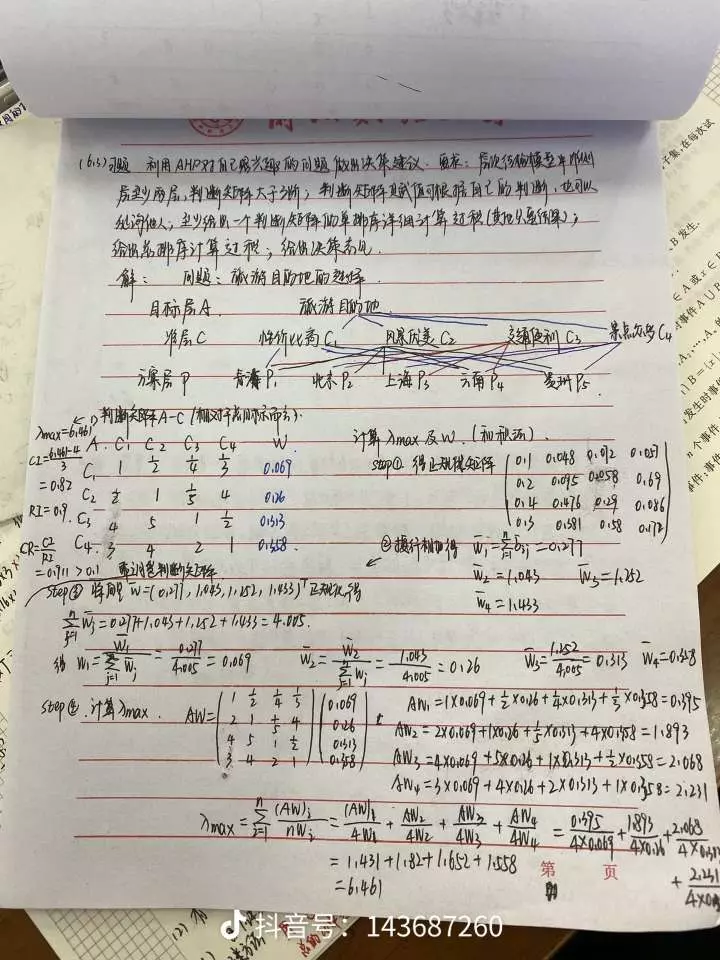 (6.3)习题 利用AHP对自己感兴趣的问题做出决策建议. 要求: 层次结构模型中准则
层至少两层, 判断矩阵大于3阶; 判断矩阵赋值可根据自己的判断, 也可以
咨询他人; 至少给出一个判断矩阵的单排序详细计算过程(其他只要结果);
给出总排序计算过程; 给出决策意见.
解: 问题: 旅游目的地的选择.
目标层A 旅游目的地
准层C 性价比高C₁ 风景优美C2 交通便利C3 景点众多C4
方案层P 青海P₁ 北京P2 上海P3 云南P4 贵州P5
1) 判断矩阵A-C(相对于总目标而言).
A C₁ C₂ C₃ C₄ W
C₁ 1 ½ ¼ ⅓ 0.069
C₂ 2 1 ⅕ 4 0.26
C₃ 4 5 1 ½ 0.313
C₄ 3 4 2 1 0.358
λmax=6.461
CI=(6.461-4)/3
=0.82
RI=0.9
CR=CI/RI
=0.911>0.1
计算λmax及W. (和积法).
step① 得正规矩阵
0.1 0.048 0.072 0.057
0.2 0.095 0.058 0.69
0.4 0.476 0.29 0.086
0.3 0.381 0.58 0.172
②按行相加得 W̄₁=∑b̄ᵢⱼ=0.277
W̄₂=1.043 W̄3=1.252
W̄4=1.433
step③ 将向量W=(0.277, 1.043, 1.252, 1.433)ᵀ正规化得
∑W̄j=0.277+1.043+1.252+1.433=4.005.
得 W₁=W̄₁/∑W̄j=0.277/4.005=0.069 W̄2=W̄2/∑Wj=1.043/4.005=0.26 W̄3=1.252/4.005=0.313 W̄4=0.358
step④.计算λmax. AW=
1 ½ ¼ ⅓ 0.069
2 1 ⅕ 4 0.26
4 5 1 ½ 0.313
3 4 2 1 0.358
AW₁=1×0.069+½×0.26+¼×0.313+⅓×0.358=0.395
AW2=2×0.069+1×0.26+⅕×0.313+4×0.358=1.893
AW3=4×0.069+5×0.26+1×0.313+½×0.358=2.068
AW4=3×0.069+4×0.26+2×0.313+1×0.358=2.231
λmax=∑(AW)i/nWi=(AW)₁/4W₁+AW2/4W2+AW3/4W3+AW4/4W4=0.395/4×0.069+1.893/4×0.26+2.068/4×0.313
+2.231
=1.431+1.82+1.652+1.558
=6.461
第 页
抖音号：143687260